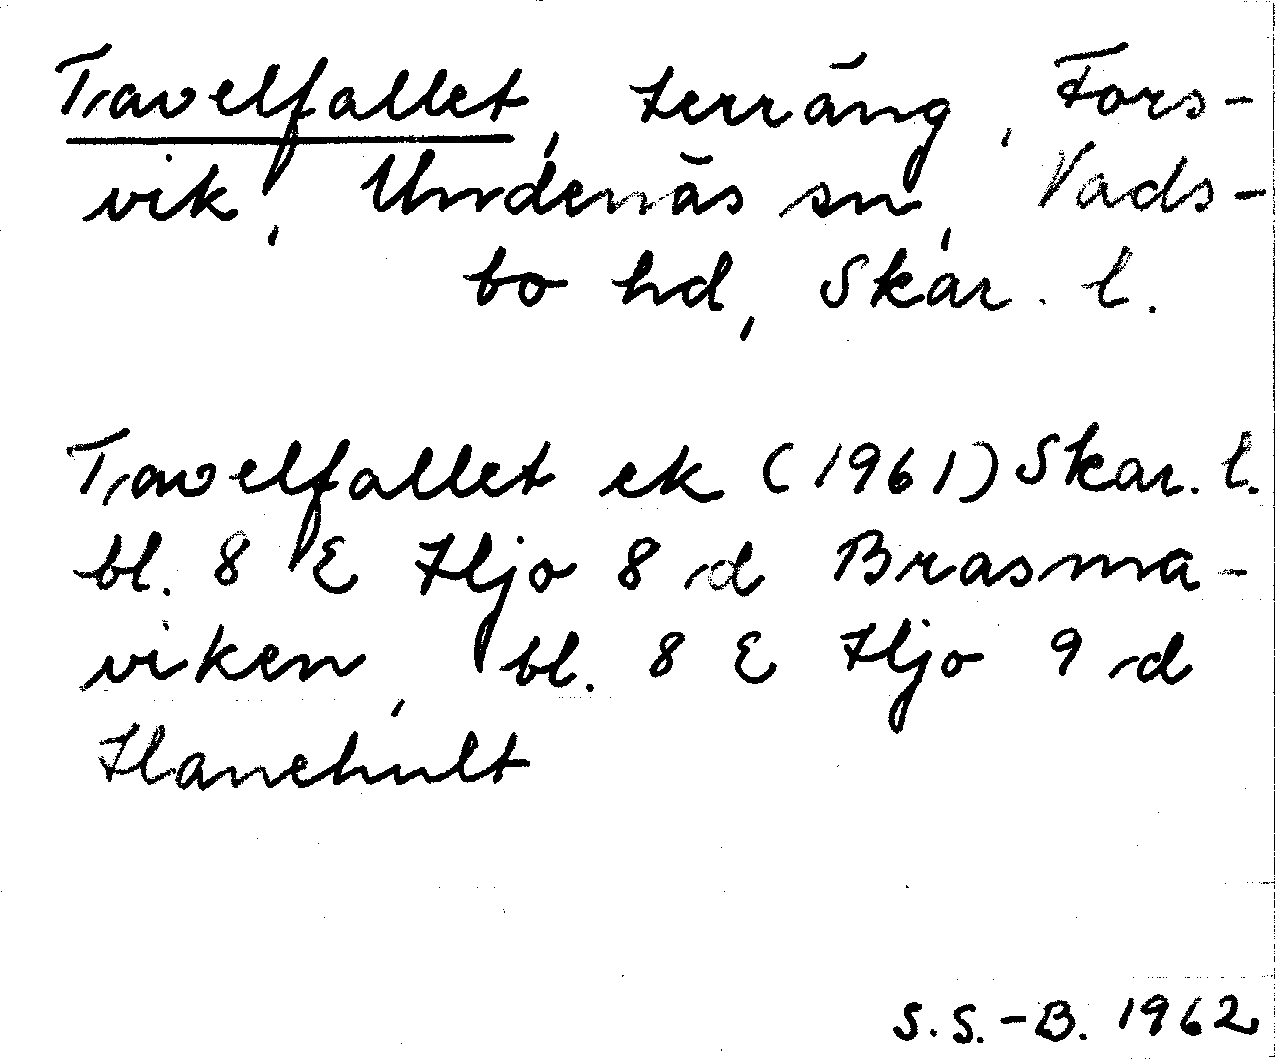 Travelfallet, terräng, Fors-
vik, Undenäs sn, Vads-
bo hd, Skar. l.
Travelfallet ek (1961) Skar. l.
bl. 8 E Hjo 8 d Brasma-
viken, bl. 8 E Hjo 9 d
Hanehult
S.S.-B. 1962